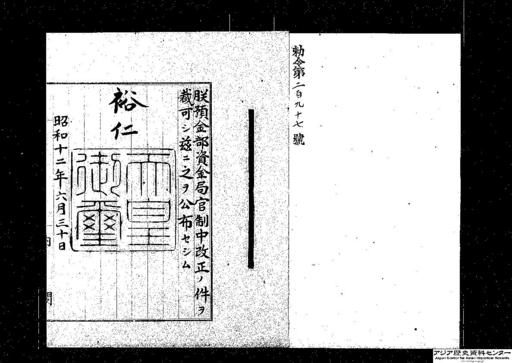 勅令第二百九十七號
朕預金部資金局官制中改正ノ件ヲ
裁可シ玆ニ之ヲ公布セシム
裕仁
天皇御璽
昭和十二年六月三十日
アジア歴史資料センター
Japan Center for Asian Historical Records